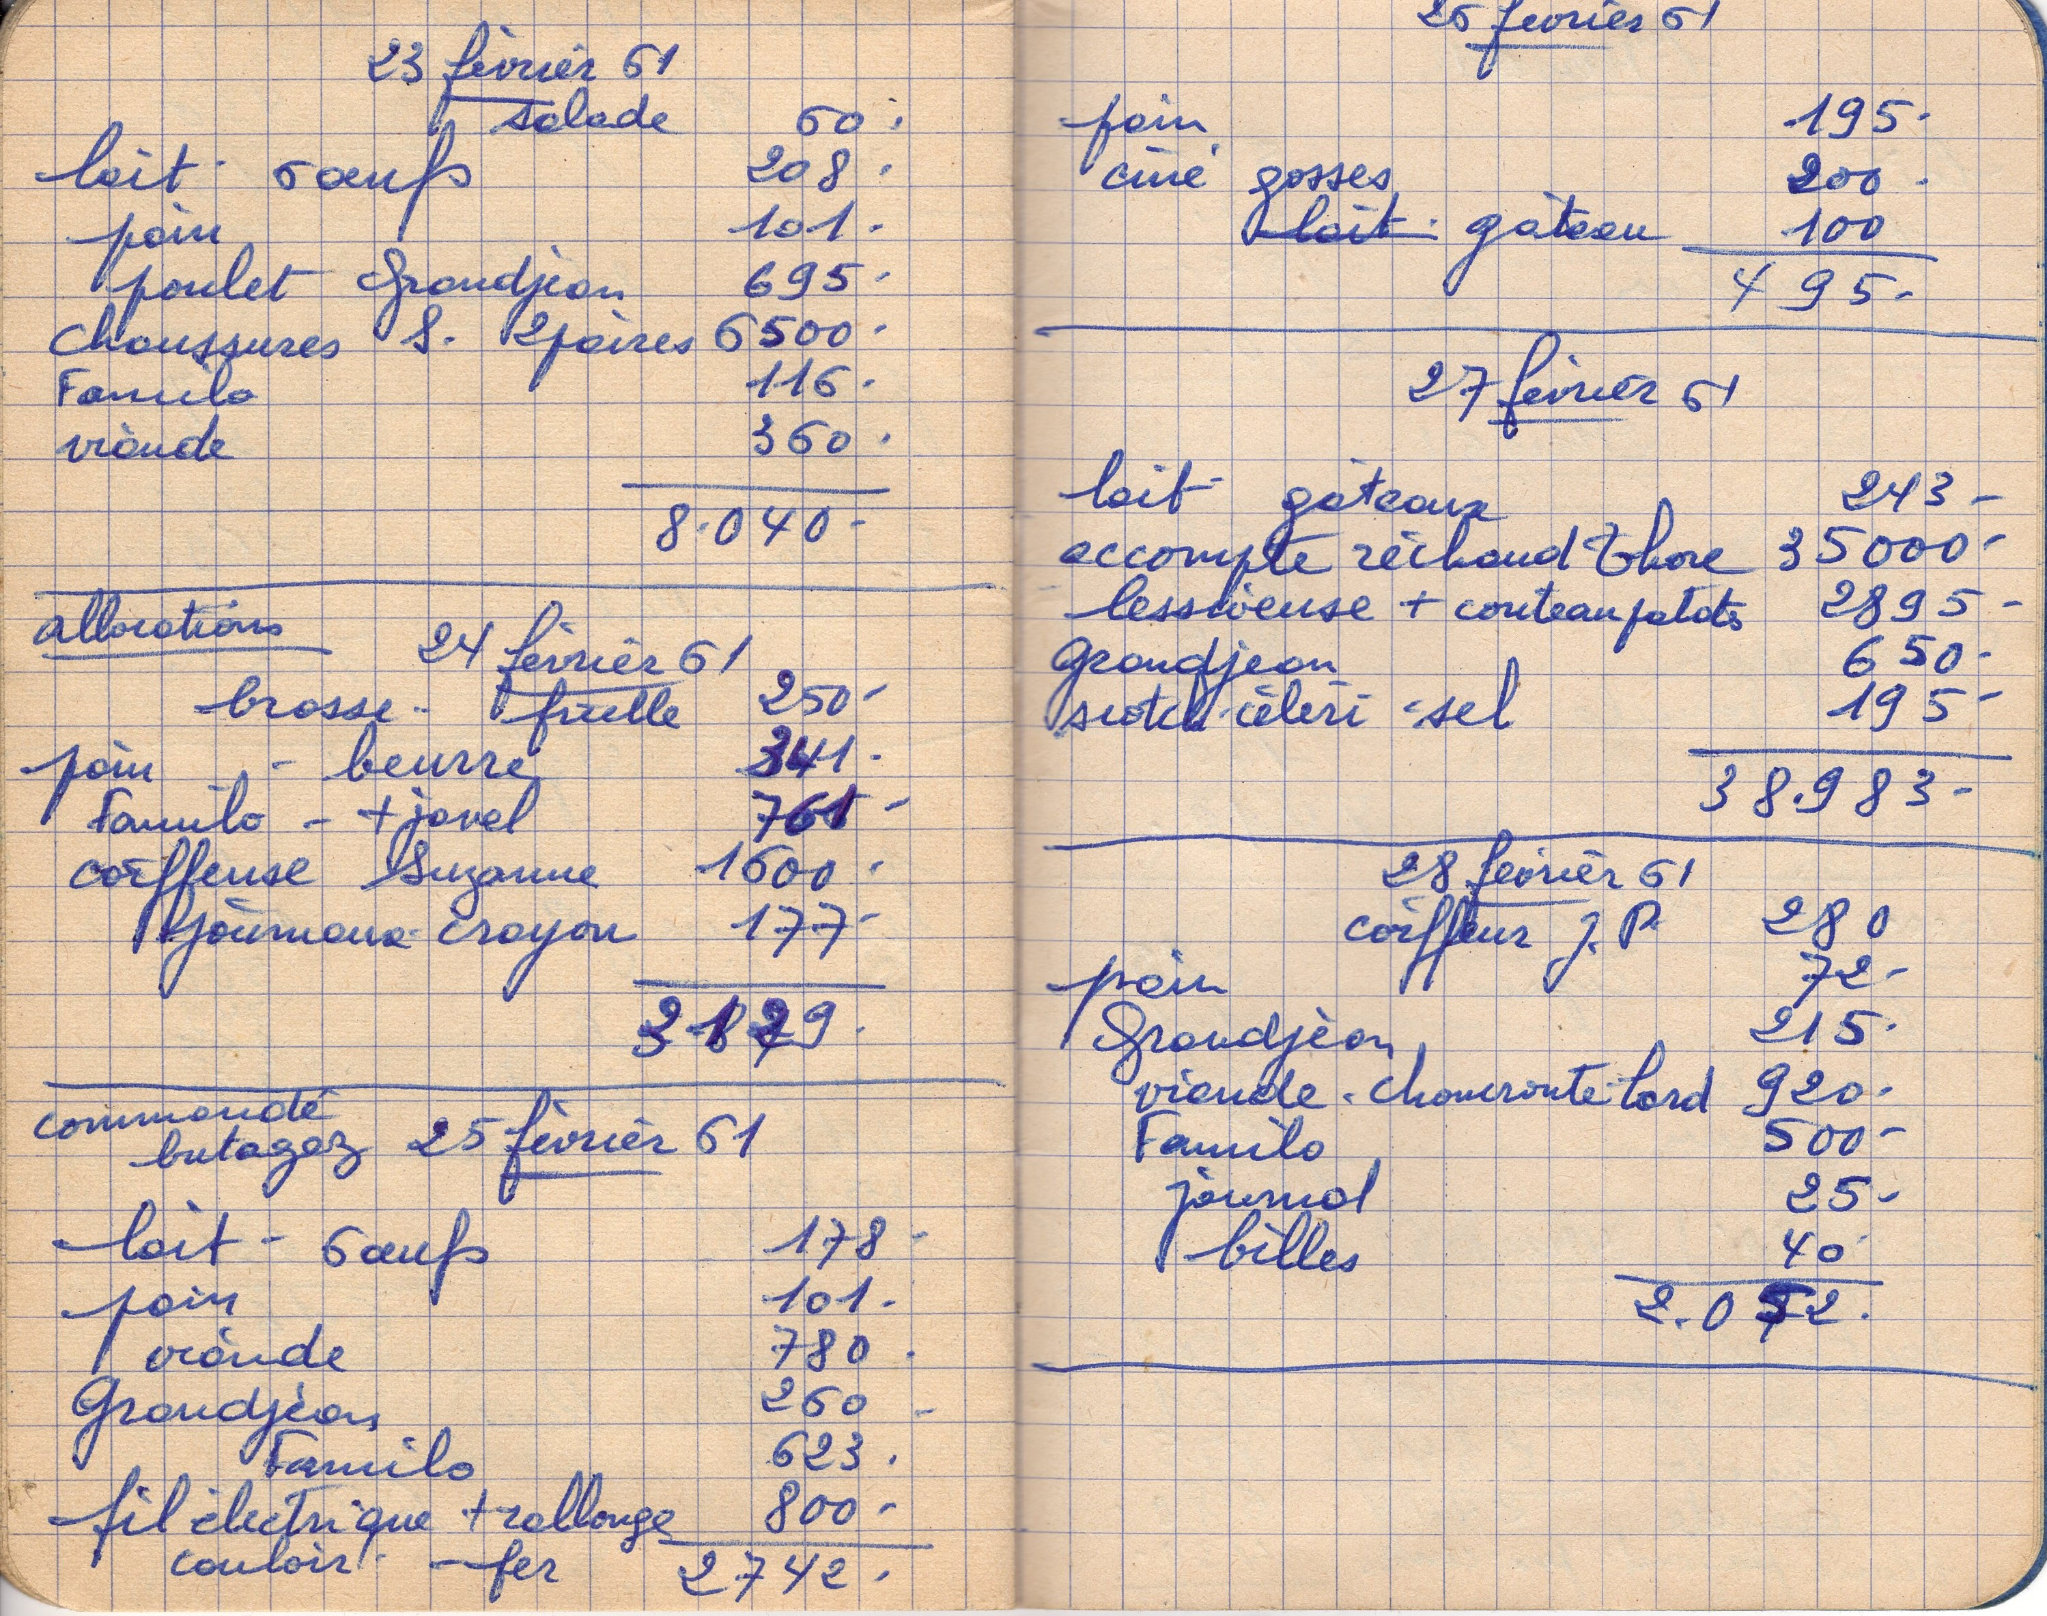 23 février 61
salade 60.
lait - 6 œufs 208.
pain 101.
poulet Grandjean 695.
chaussures S. 2 paires 6500.
Familo 116.
viande 360.
8.040-
allocations
24 février 61
brosse - ficelle 250-
pain - beurre 341.
Familo - + javel 761-
coiffeuse Suzanne 1600.
journaux crayon 177-
3129.
commandé
butagaz 25 février 61
lait - 6 œufs 178-
pain 101.
viande 780.
Grandjean 260-
Familo 623.
fil électrique + rallonge 800-
couloir - fer 2742.
26 février 61
pain 195.
ciné gosses 200-
lait - gâteau 100
495-
27 février 61
lait - gâteaux 243-
accompte réchaud Thore 35000-
lessiveuse + couteau patates 2895-
Grandjean 650-
scotch - céleri - sel 195-
38.983-
28 février 61
coiffeur J.P. 280
pain 72-
Grandjean 215.
viande - choucroute - lard 920.
Familo 500-
journal 25-
billes 40
2.052.